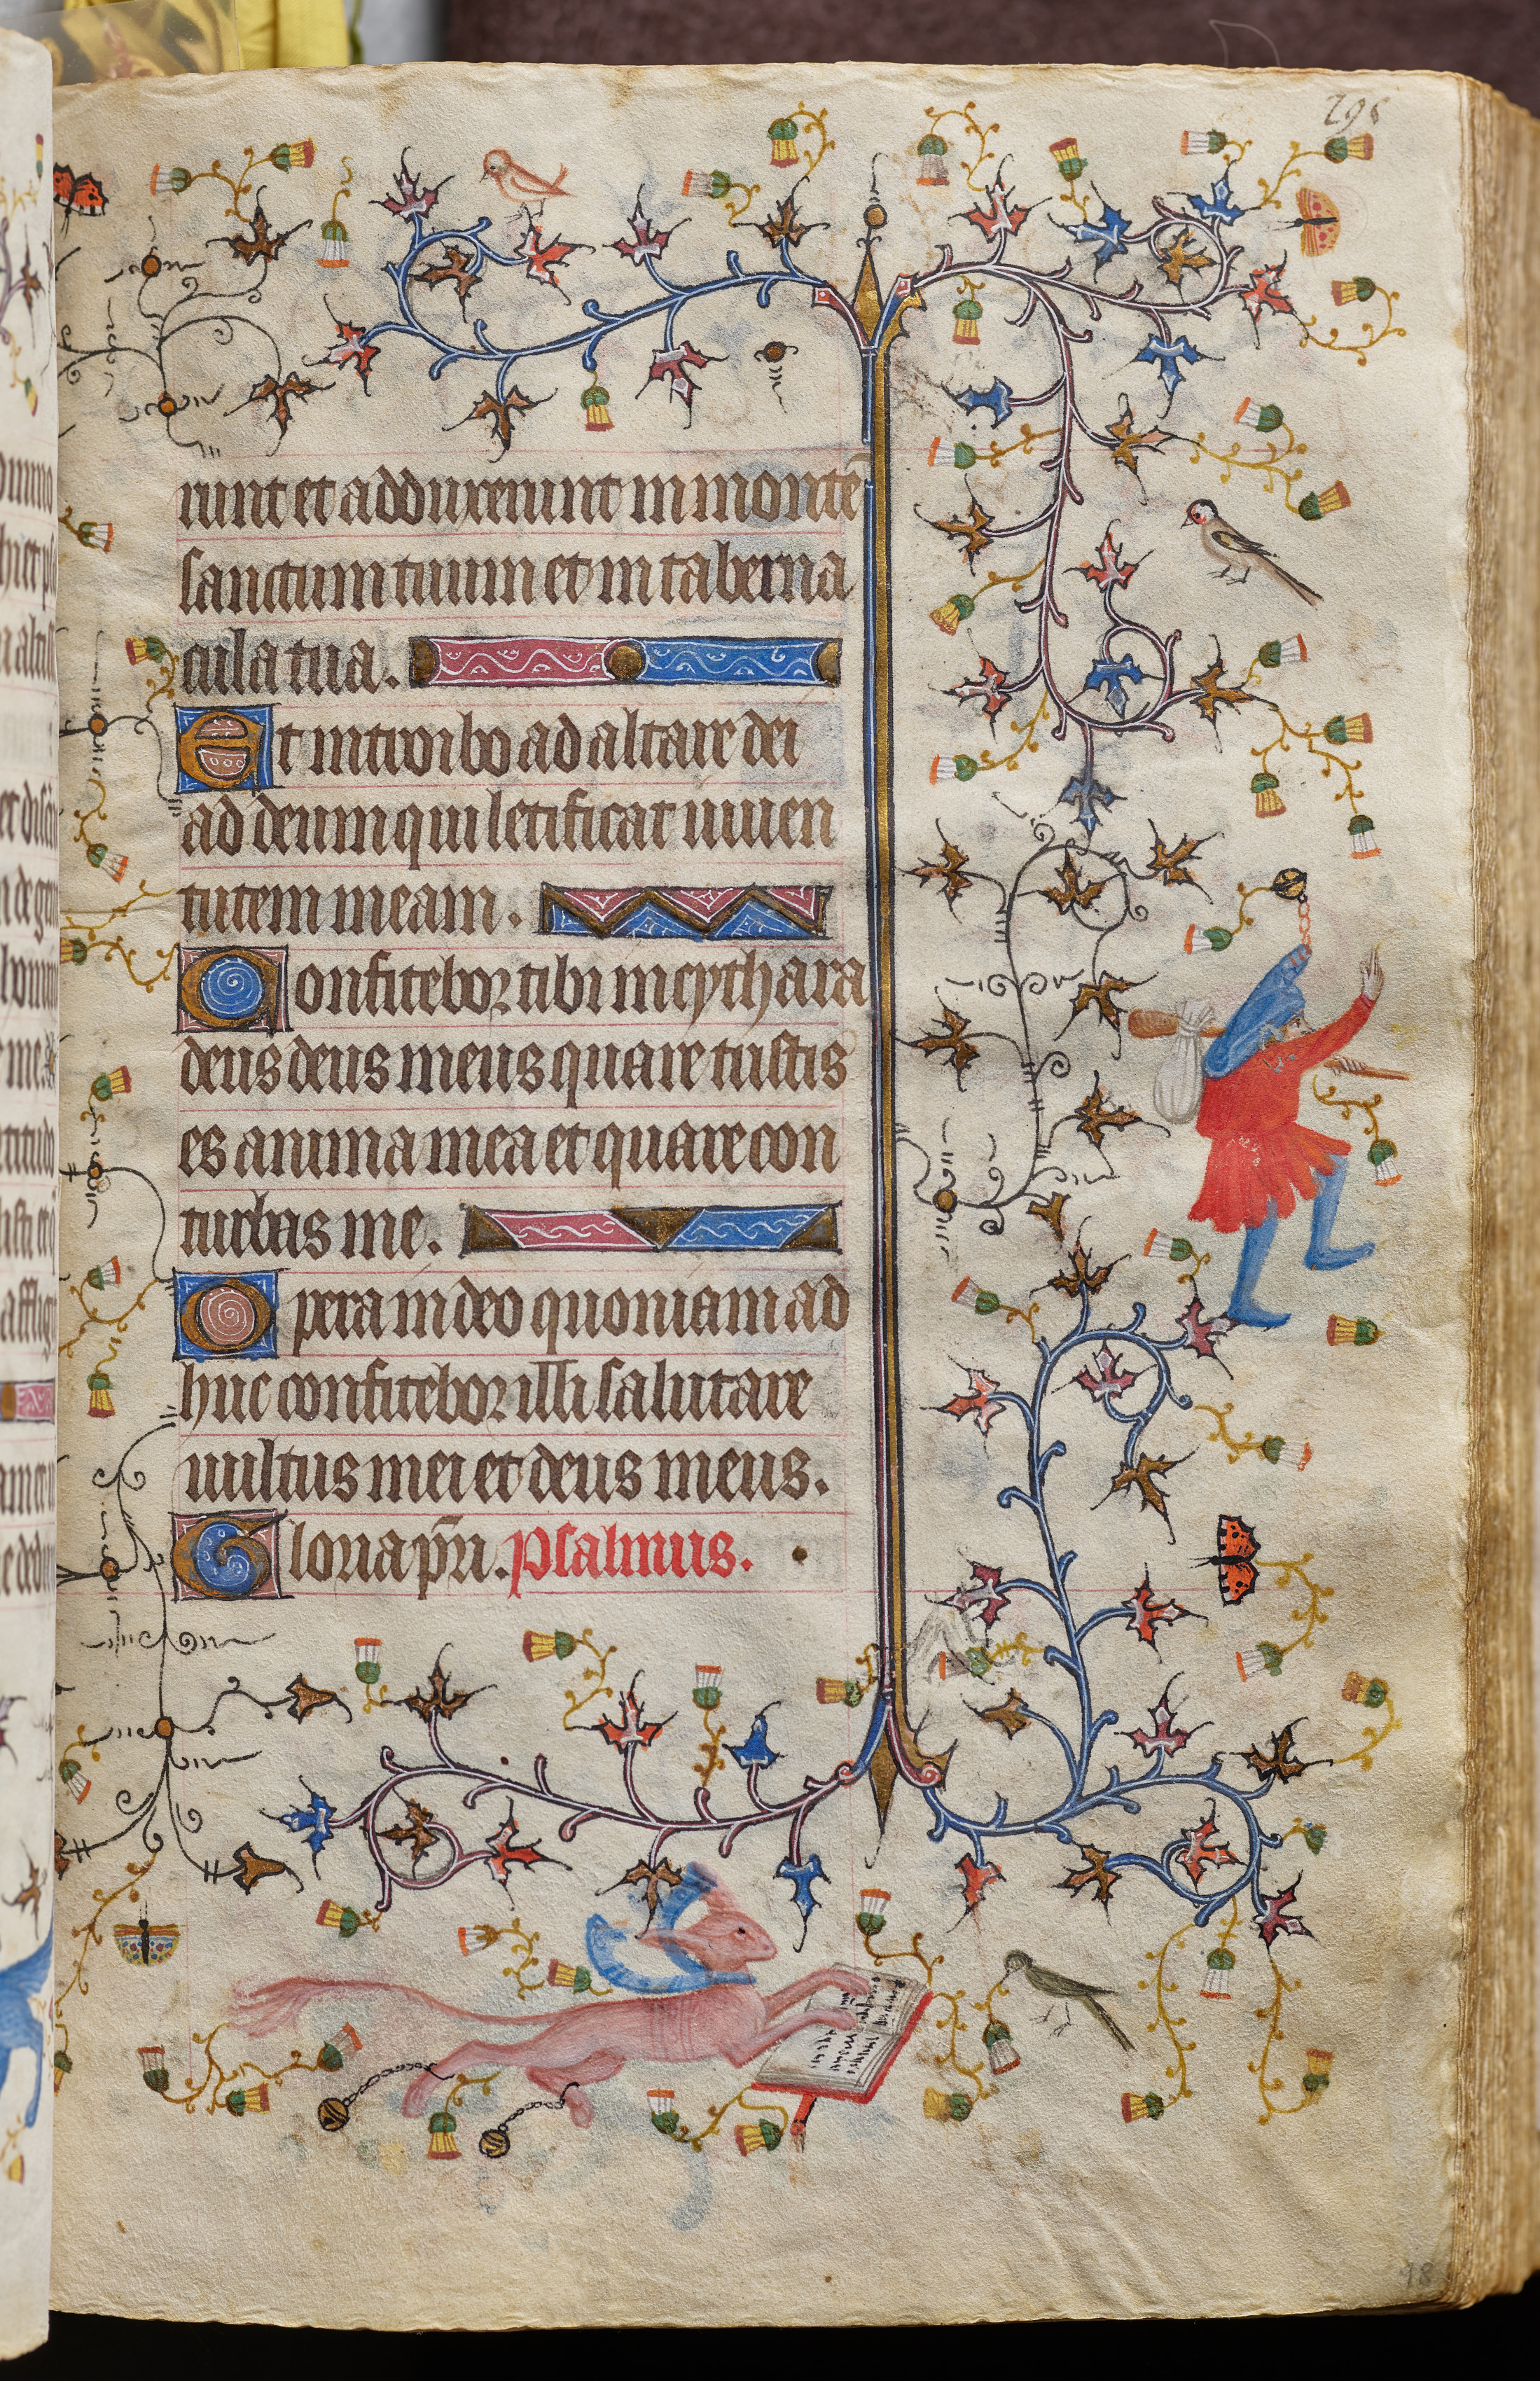 298
runt et adduxerunt in montē
sanctum tuum et in taberna
cula tua.
Et introibo ad altare dei
ad deum qui letificat iuuen
tutem meam.
Confitebor tibi in cythara
deus deus meus quare tristis
es anima mea et quare con
turbas me.
Spera in deo quoniam ad
huc confitebor illi salutare
uultus mei et deus meus.
Gloria pr̄i. psalmus.